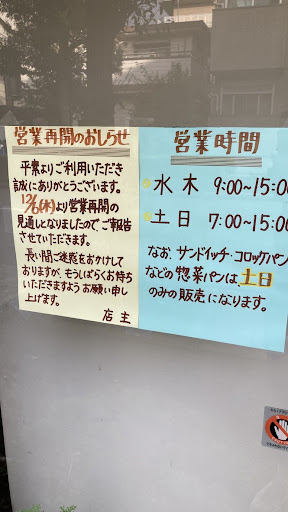 営業再開のおしらせ
平素よりご利用いただき
誠にありがとうございます。
12/6(水)より営業再開の
見通しとなりましたのでご報告
させていただきます。
長い間ご迷惑をおかけして
おりますが、もうしばらくお待ち
いただきますようお願い申し
上げます。
店主
営業時間
水木 9:00~15:00
土日 7:00~15:00
なお、サンドイッチ・コロッケパン
などの惣菜パンは土日
のみの販売になります。